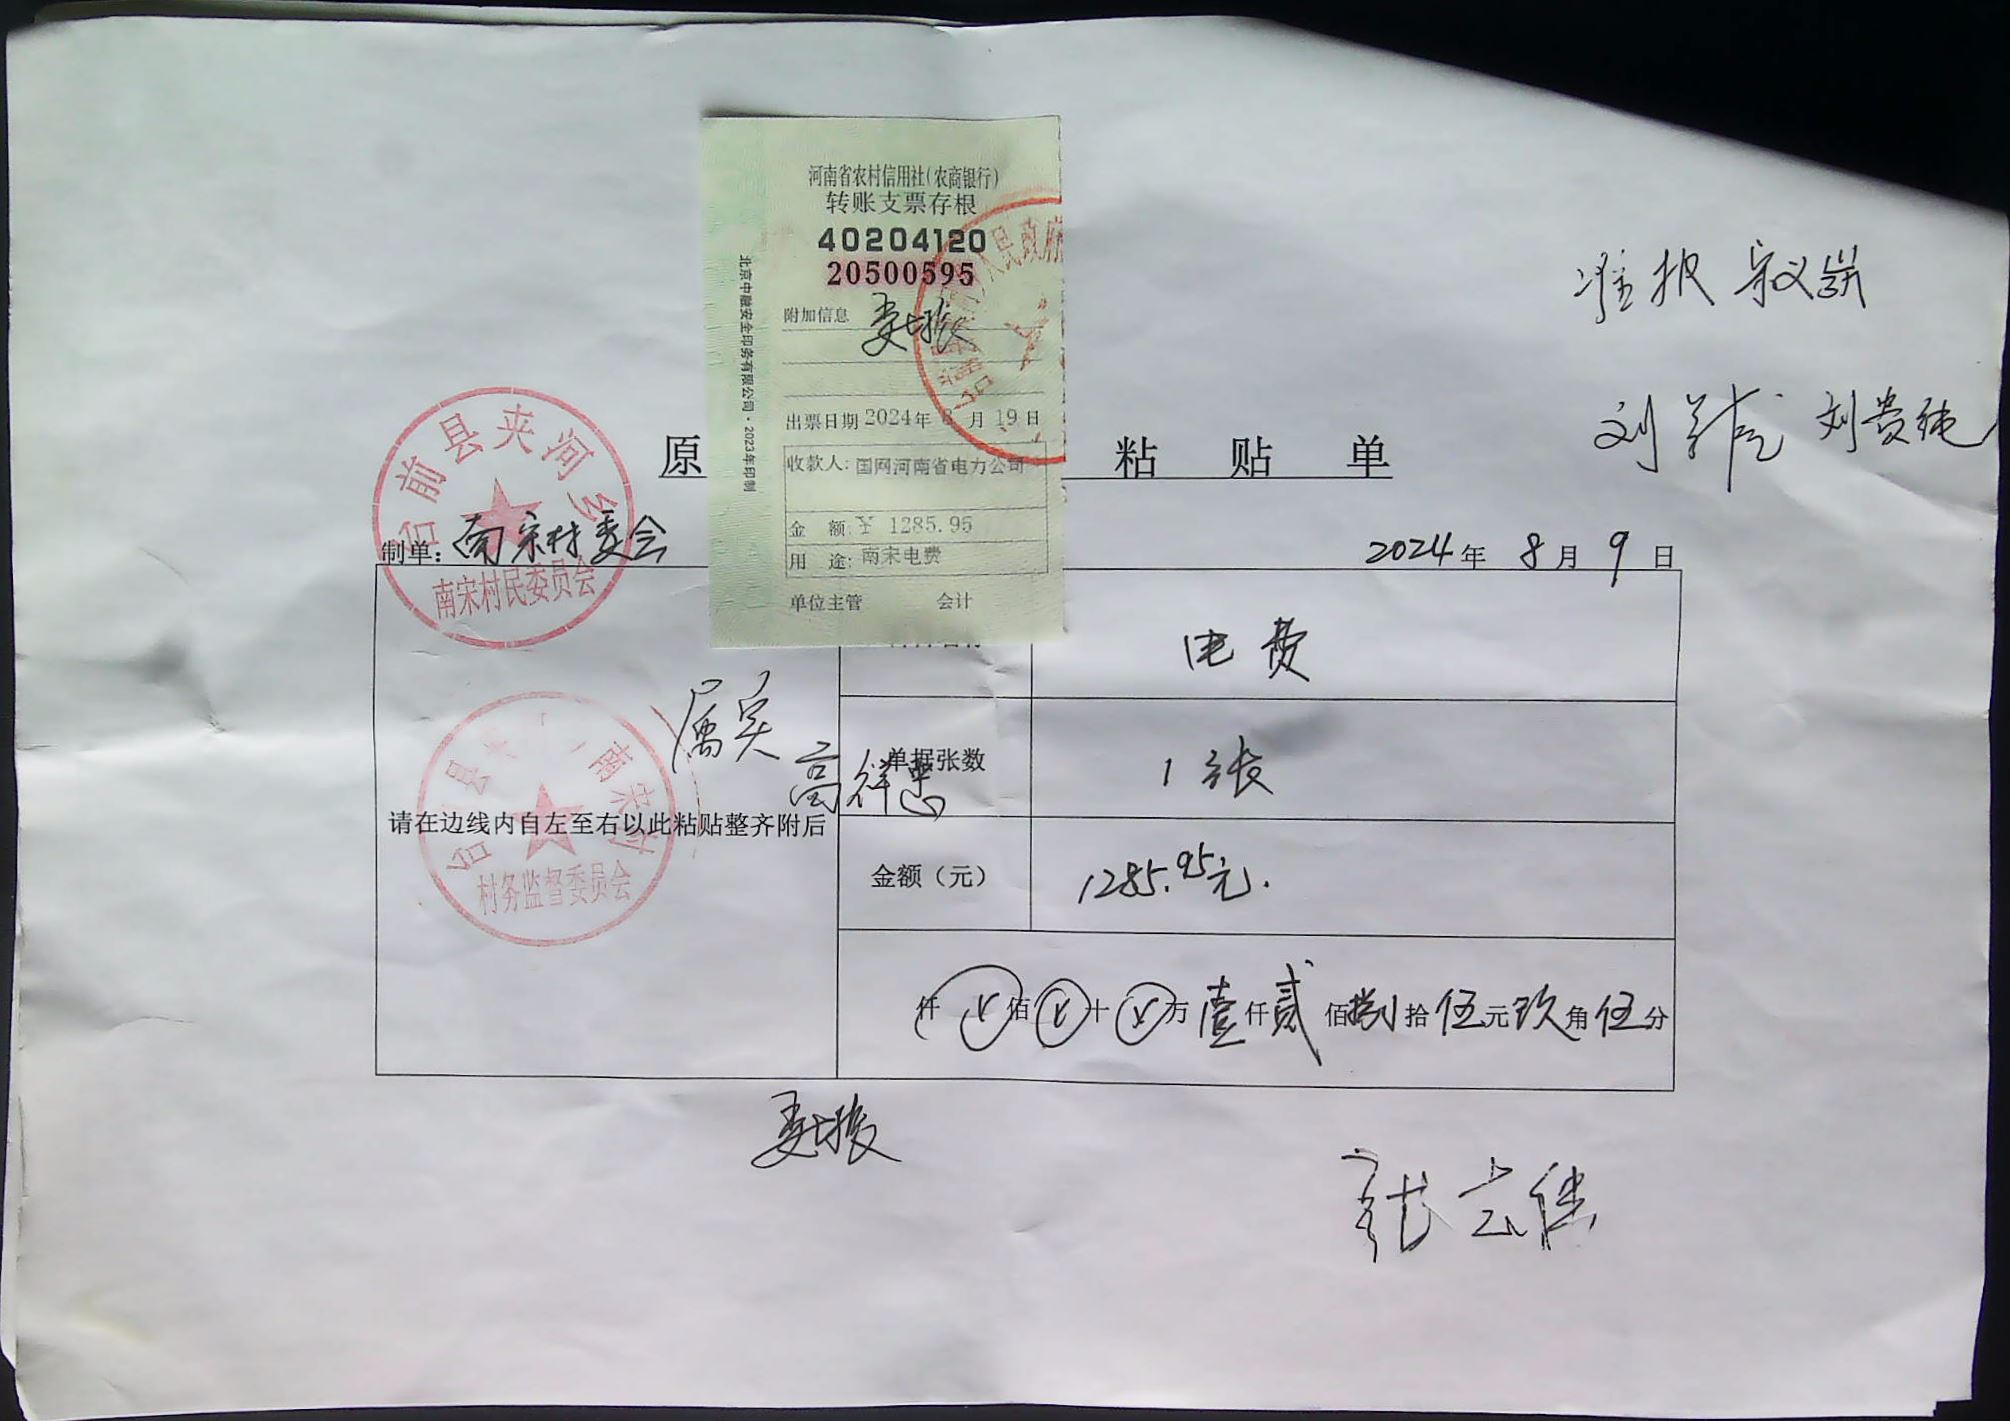 河南省农村信用社(农商银行)
转账支票存根
40204120
20500595
附加信息
出票日期 2024年 8 月 19 日
收款人: 国网河南省电力公司
金 额: ¥ 1285.95
用 途: 南宋电费
单位主管 会计
北京中融安全印务有限公司·2023年印制
人民政府
准报
刘贵纯
原
粘贴单
台前县夹河乡
南宋村民委员会
制单: 南宋村委会
2024 年 8 月 9 日
电费
属实
高祥忠
单据张数
1 张
请在边线内自左至右以此粘贴整齐附后
台 县 南宋村
村务监督委员会
金额（元）
1285.95元.
仟 佰 十 万 壹仟贰佰捌拾伍元玖角伍分